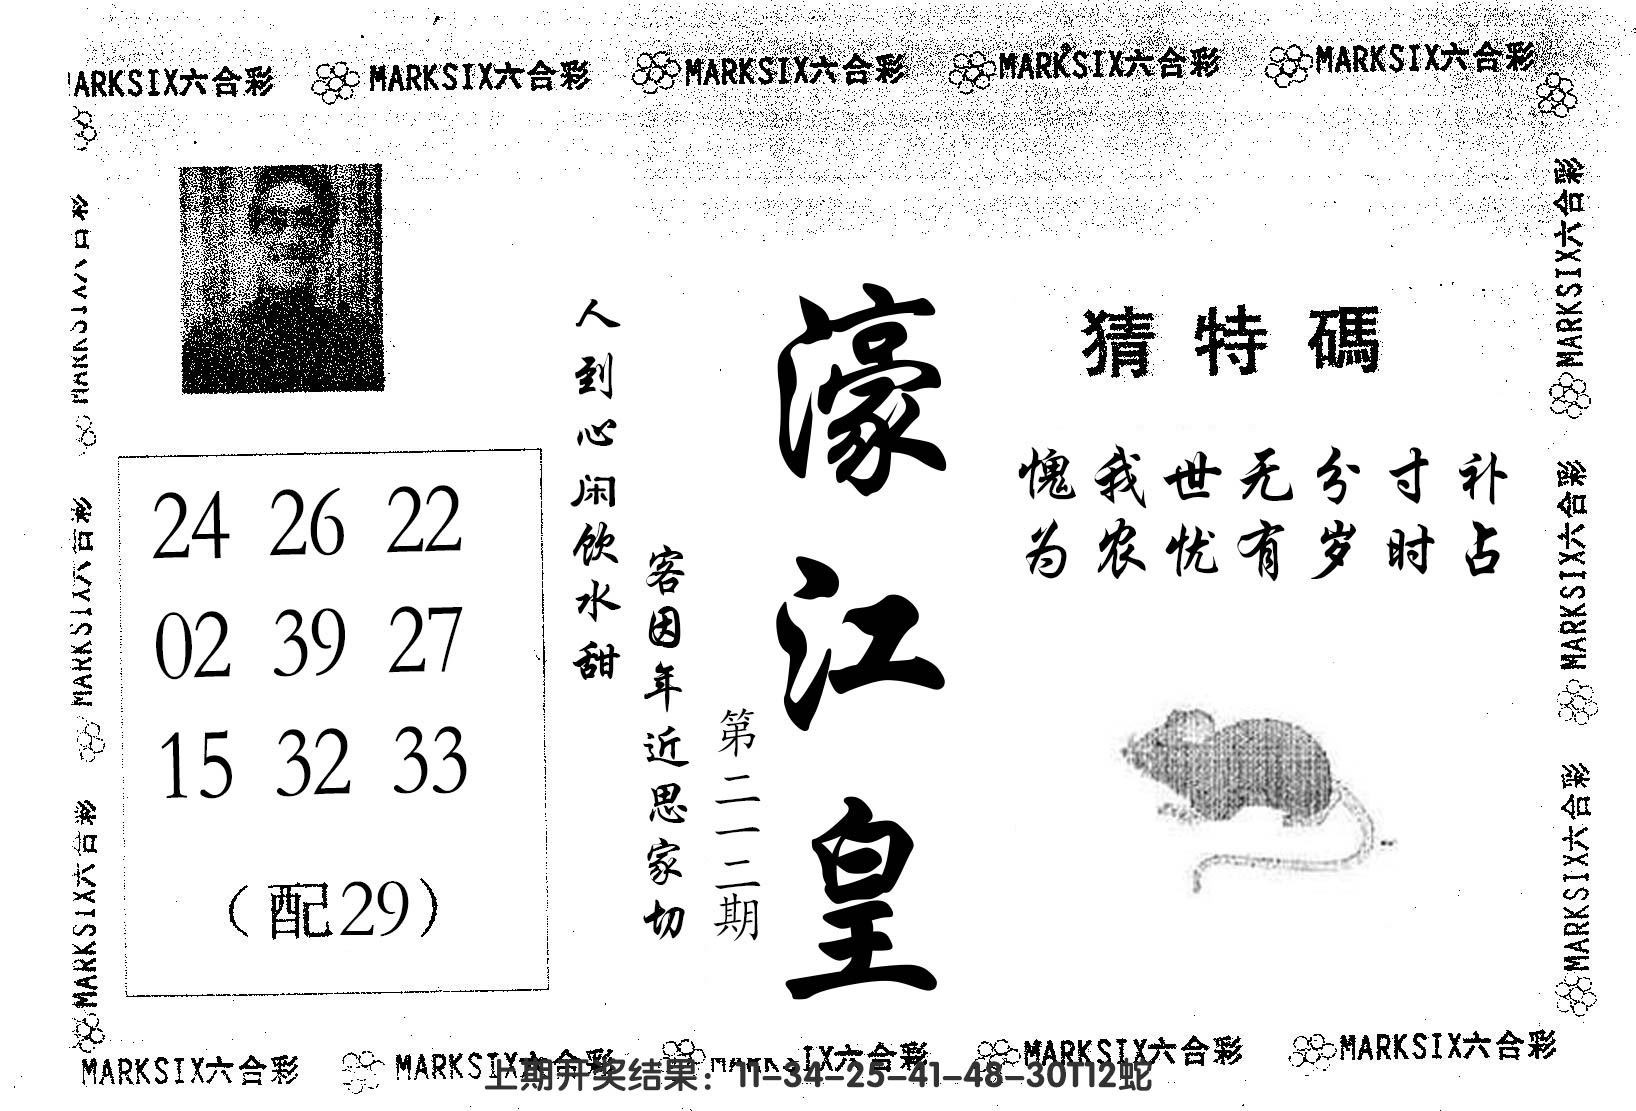 MARKSIX六合彩 MARKSIX六合彩 MARKSIX六合彩 MARKSIX六合彩 MARKSIX六合彩
MARKSIX六合彩
MARKSIX六合彩
MARKSIX六合彩
24 26 22
02 39 27
15 32 33
(配29)
人到心闲饮水甜
客因年近思家切
第二一二期
濠江皇
猜特碼
愧我世无分寸补
为农忧有岁时占
MARKSIX六合彩
MARKSIX六合彩
MARKSIX六合彩
MARKSIX六合彩 MARKSIX六合彩 MARKSIX六合彩 MARKSIX六合彩 MARKSIX六合彩
上期开奖结果：11-34-25-41-48-30T12蛇